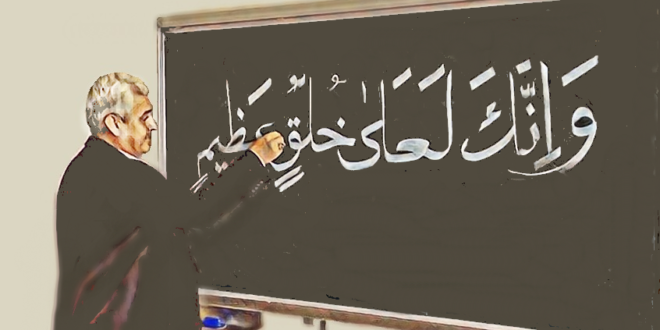 وَإِنَّكَ لَعَلىٰ خُلُقٍ عَظِيمٍ